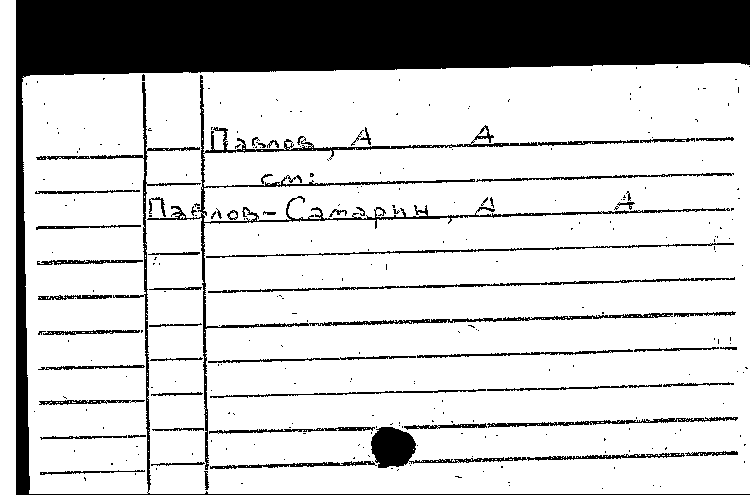 Павлов, А А
см:
Павлов-Самарин, А А